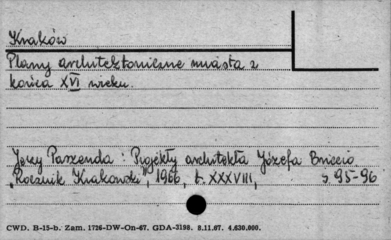 Kraków
Plany architektoniczne miasta z
końca XVI wieku.
Jerzy Paszenda : Projekty architekta Józefa Briccio
"Rocznik Krakowski", 1966, t. XXXVIII, s. 95-96
CWD. B-15-b. Zam. 1726-DW-On-67. GDA-3198. 8.11.67. 4.630.000.